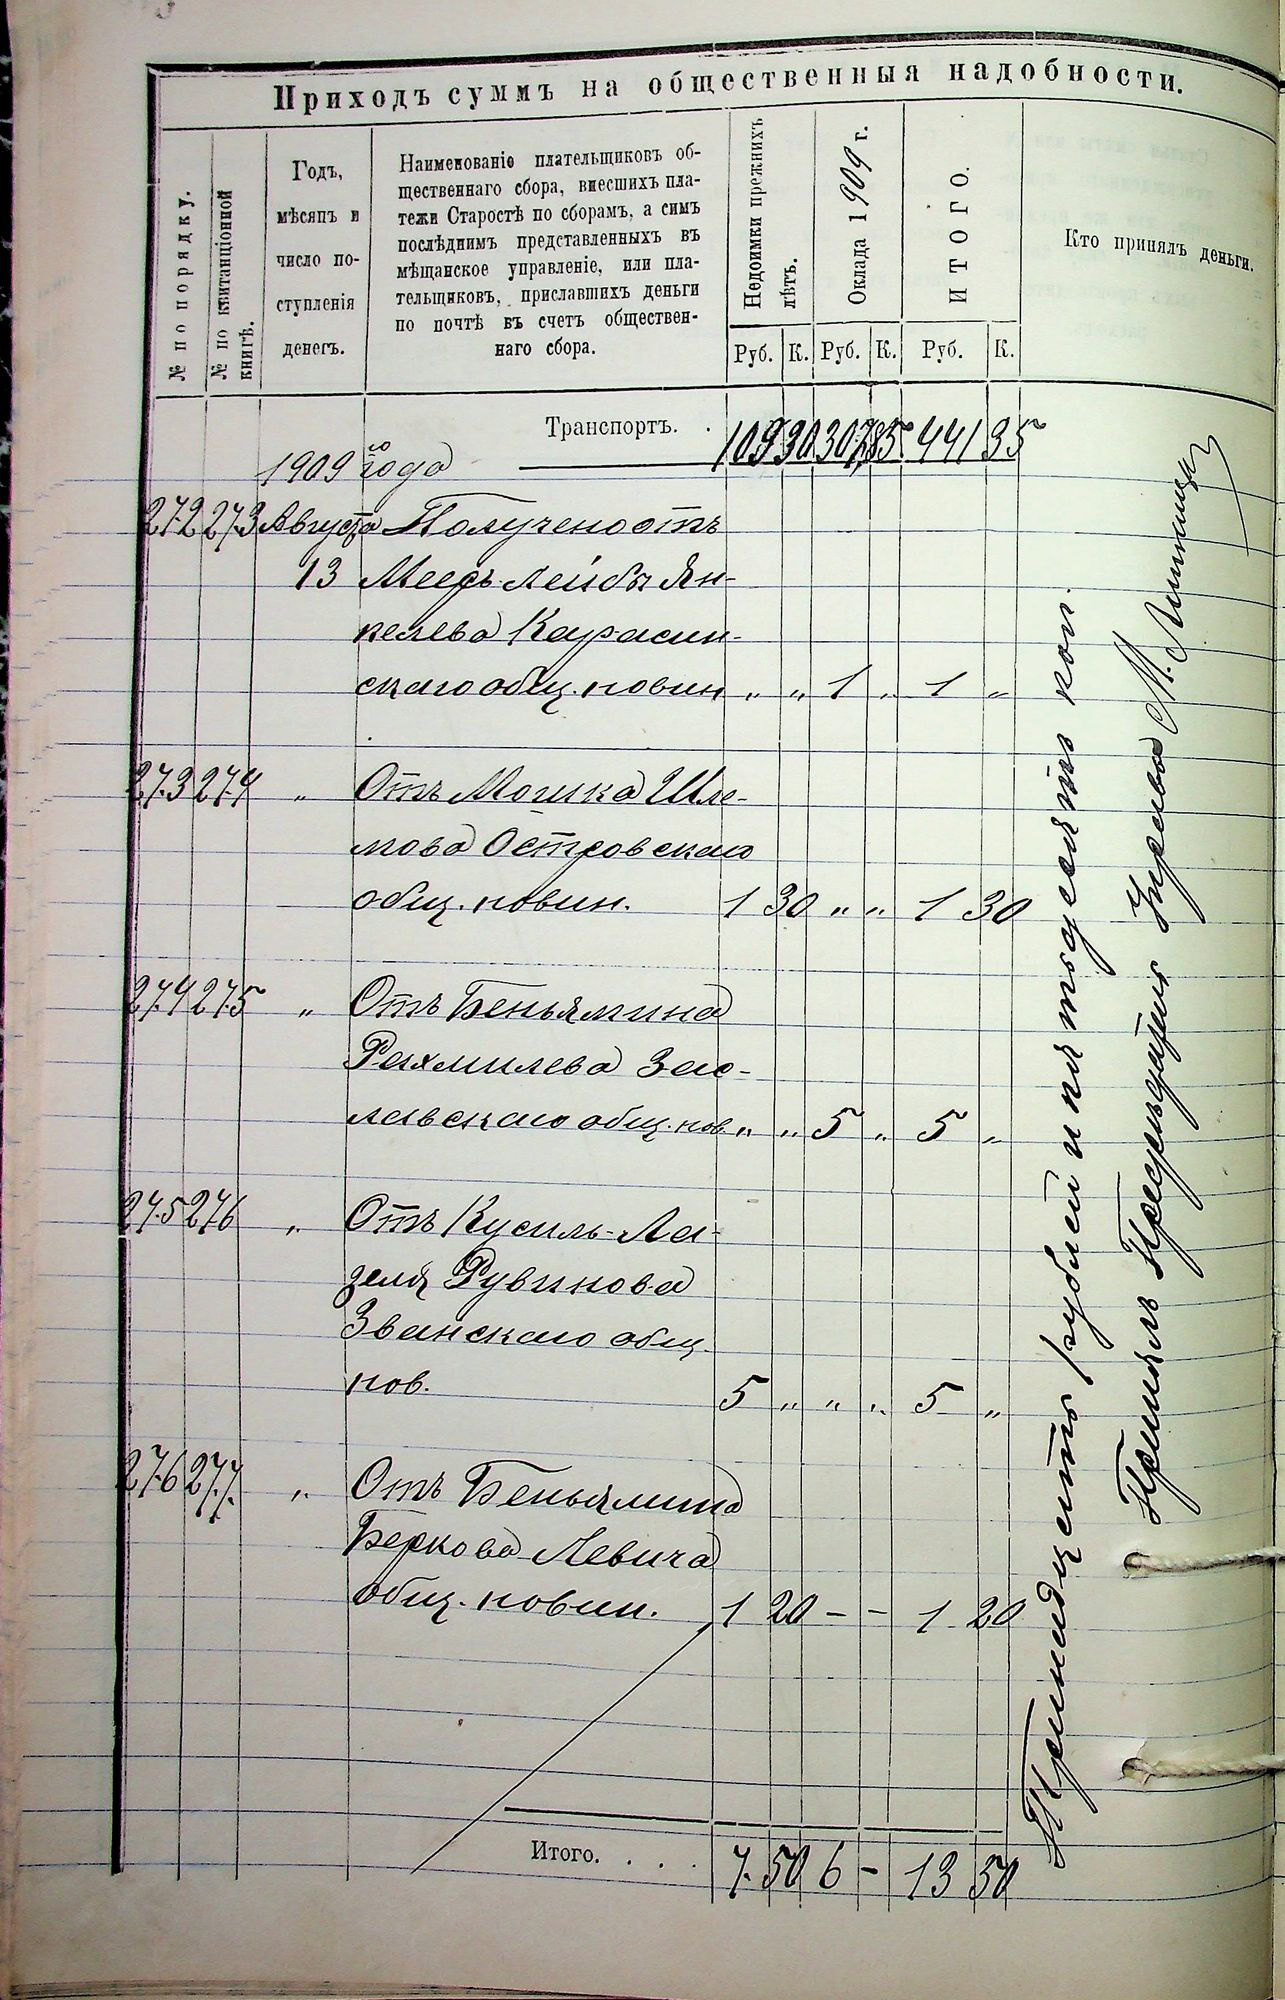 Приходъ суммъ на общественныя надобности.
№ по порядку.
№ по квитанціонной
книгѣ.
Годъ,
мѣсяцъ и
число по-
ступленія
денегъ.
Наименованіе плательщиковъ об-
щественнаго сбора, внесшихъ пла-
тежи Старостѣ по сборамъ, а симъ
послѣднимъ представленныхъ въ
мѣщанское управленіе, или пла-
тельщиковъ, приславшихъ деньги
по почтѣ въ счетъ обществен-
наго сбора.
Недоимки прежнихъ
лѣтъ.
Оклада 1909 г.
ИТОГО.
Кто принялъ деньги.
Руб. К. Руб. К. Руб. К.
Транспортъ. . 109 30 307 85 441 35
1909 го года
272 273 Августа Получено отъ
13 Меерь-Лейбы Ян-
келева Карасин-
скаго общ. повин „ „ 1 „ 1 „
273 274 „ Отъ Мошка Шле-
мова Островскаго
общ. повин. 1 30 „ „ 1 30
274 275 „ Отъ Беньямина
Рахмилева Зас-
лавскаго общ. пов. „ „ 5 „ 5 „
275 276 „ Отъ Кусиль-Ла-
зеля Рувинова
Званскаго общ.
пов. 5 „ „ „ 5 „
276 277 „ Отъ Беньямина
Беркова Левича
общ. повин. 1 20 – – 1 20
Итого. . . . 7 50 6 – 13 50
Тринадцать рублей и пятьдесятъ коп.
Принялъ Предсѣдатель Управы М.